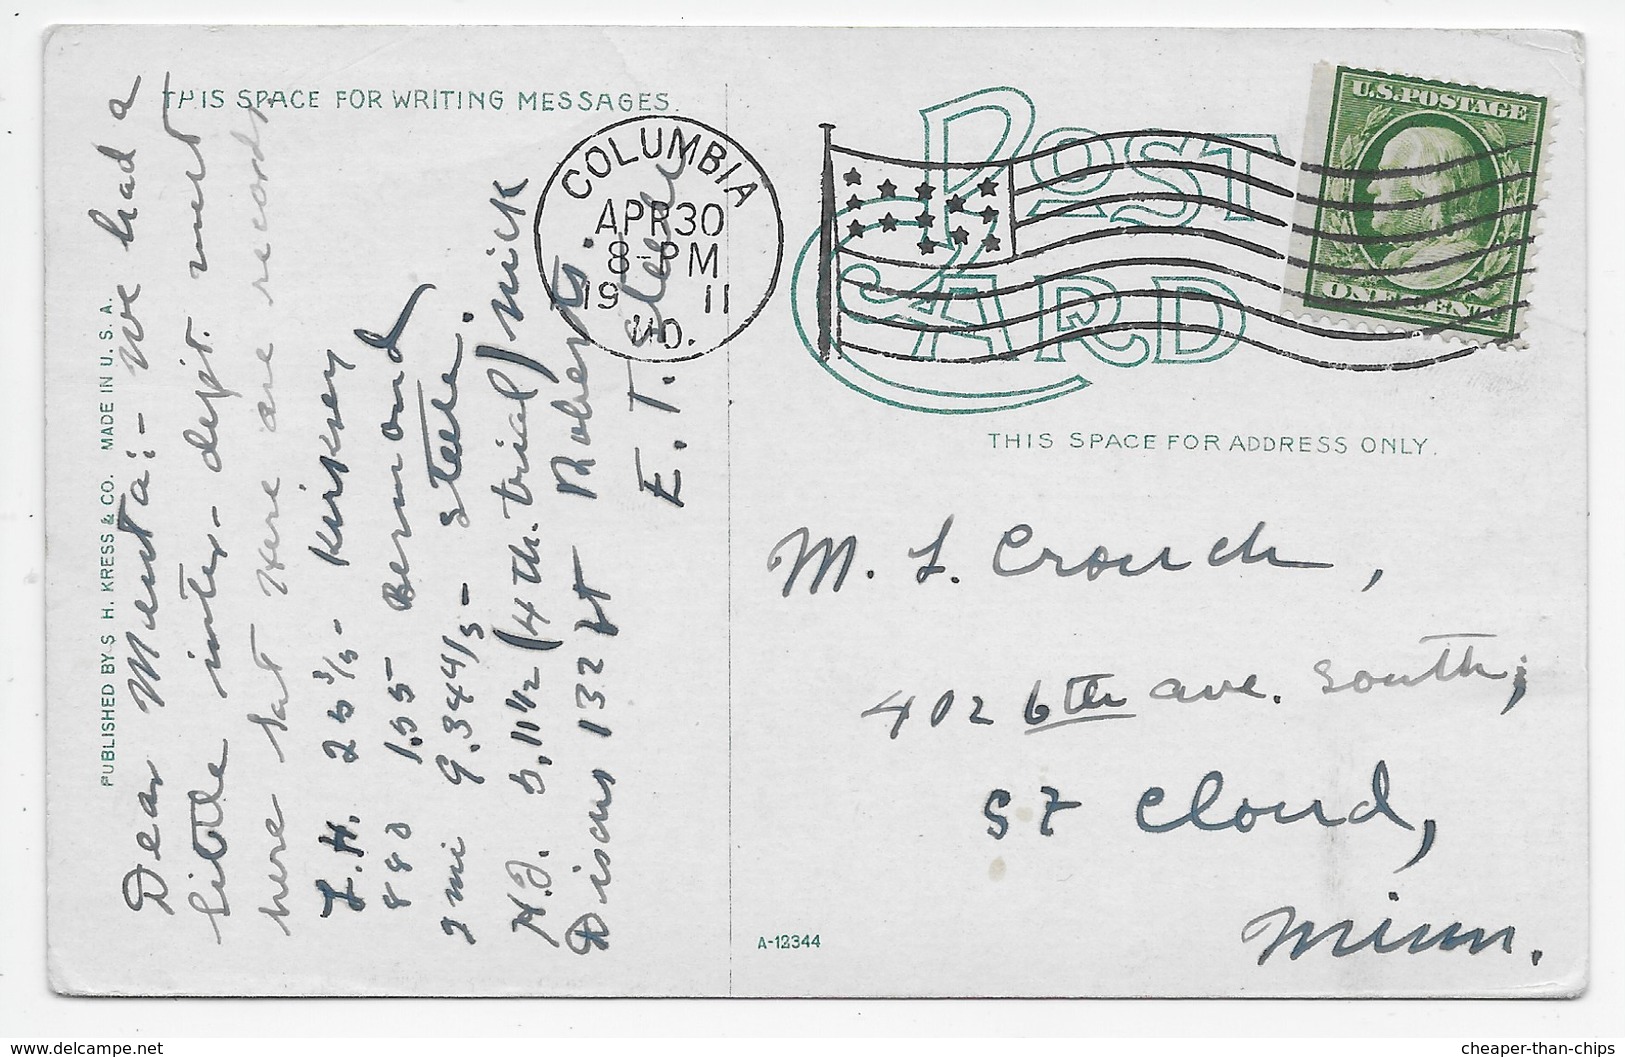 THIS SPACE FOR WRITING MESSAGES.
PUBLISHED BY S. H. KRESS & CO. MADE IN U. S. A.
Dear :- we had a
little inter- dept. meet
here Sat Here are records
L.H. 25 3/5 - Kirksey
880 1.55 Bermond
2 mi 9.34 4/5 - Steele.
H.J. 5.11 1/2 (4th. trial) nick
Discus 132 ft Roberts.
E. T. Steele
COLUMBIA
APR 30
8-PM
1911
MO.
POST CARD
U.S. POSTAGE
ONE CENT
THIS SPACE FOR ADDRESS ONLY.
M. L. Crouch,
402 6th ave. South,
St Cloud,
Minn.
A-12344
www.delcampe.net
cheaper-than-chips